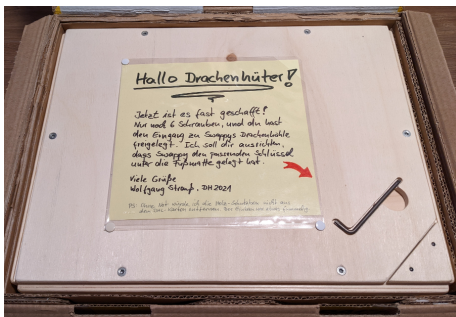 Hallo Drachenhüter!
Jetzt ist es fast geschafft!
Nur noch 6 Schrauben, und du hast
den Eingang zu Swappys Drachenhöhle
freigelegt. Ich soll dir ausrichten,
dass Swappy den passenden Schlüssel
unter die Fußmatte gelegt hat.
Viele Grüße
Wolfgang Strauß, DH2021
PS: Ohne Not würde ich die Holz-Schubladen nicht aus